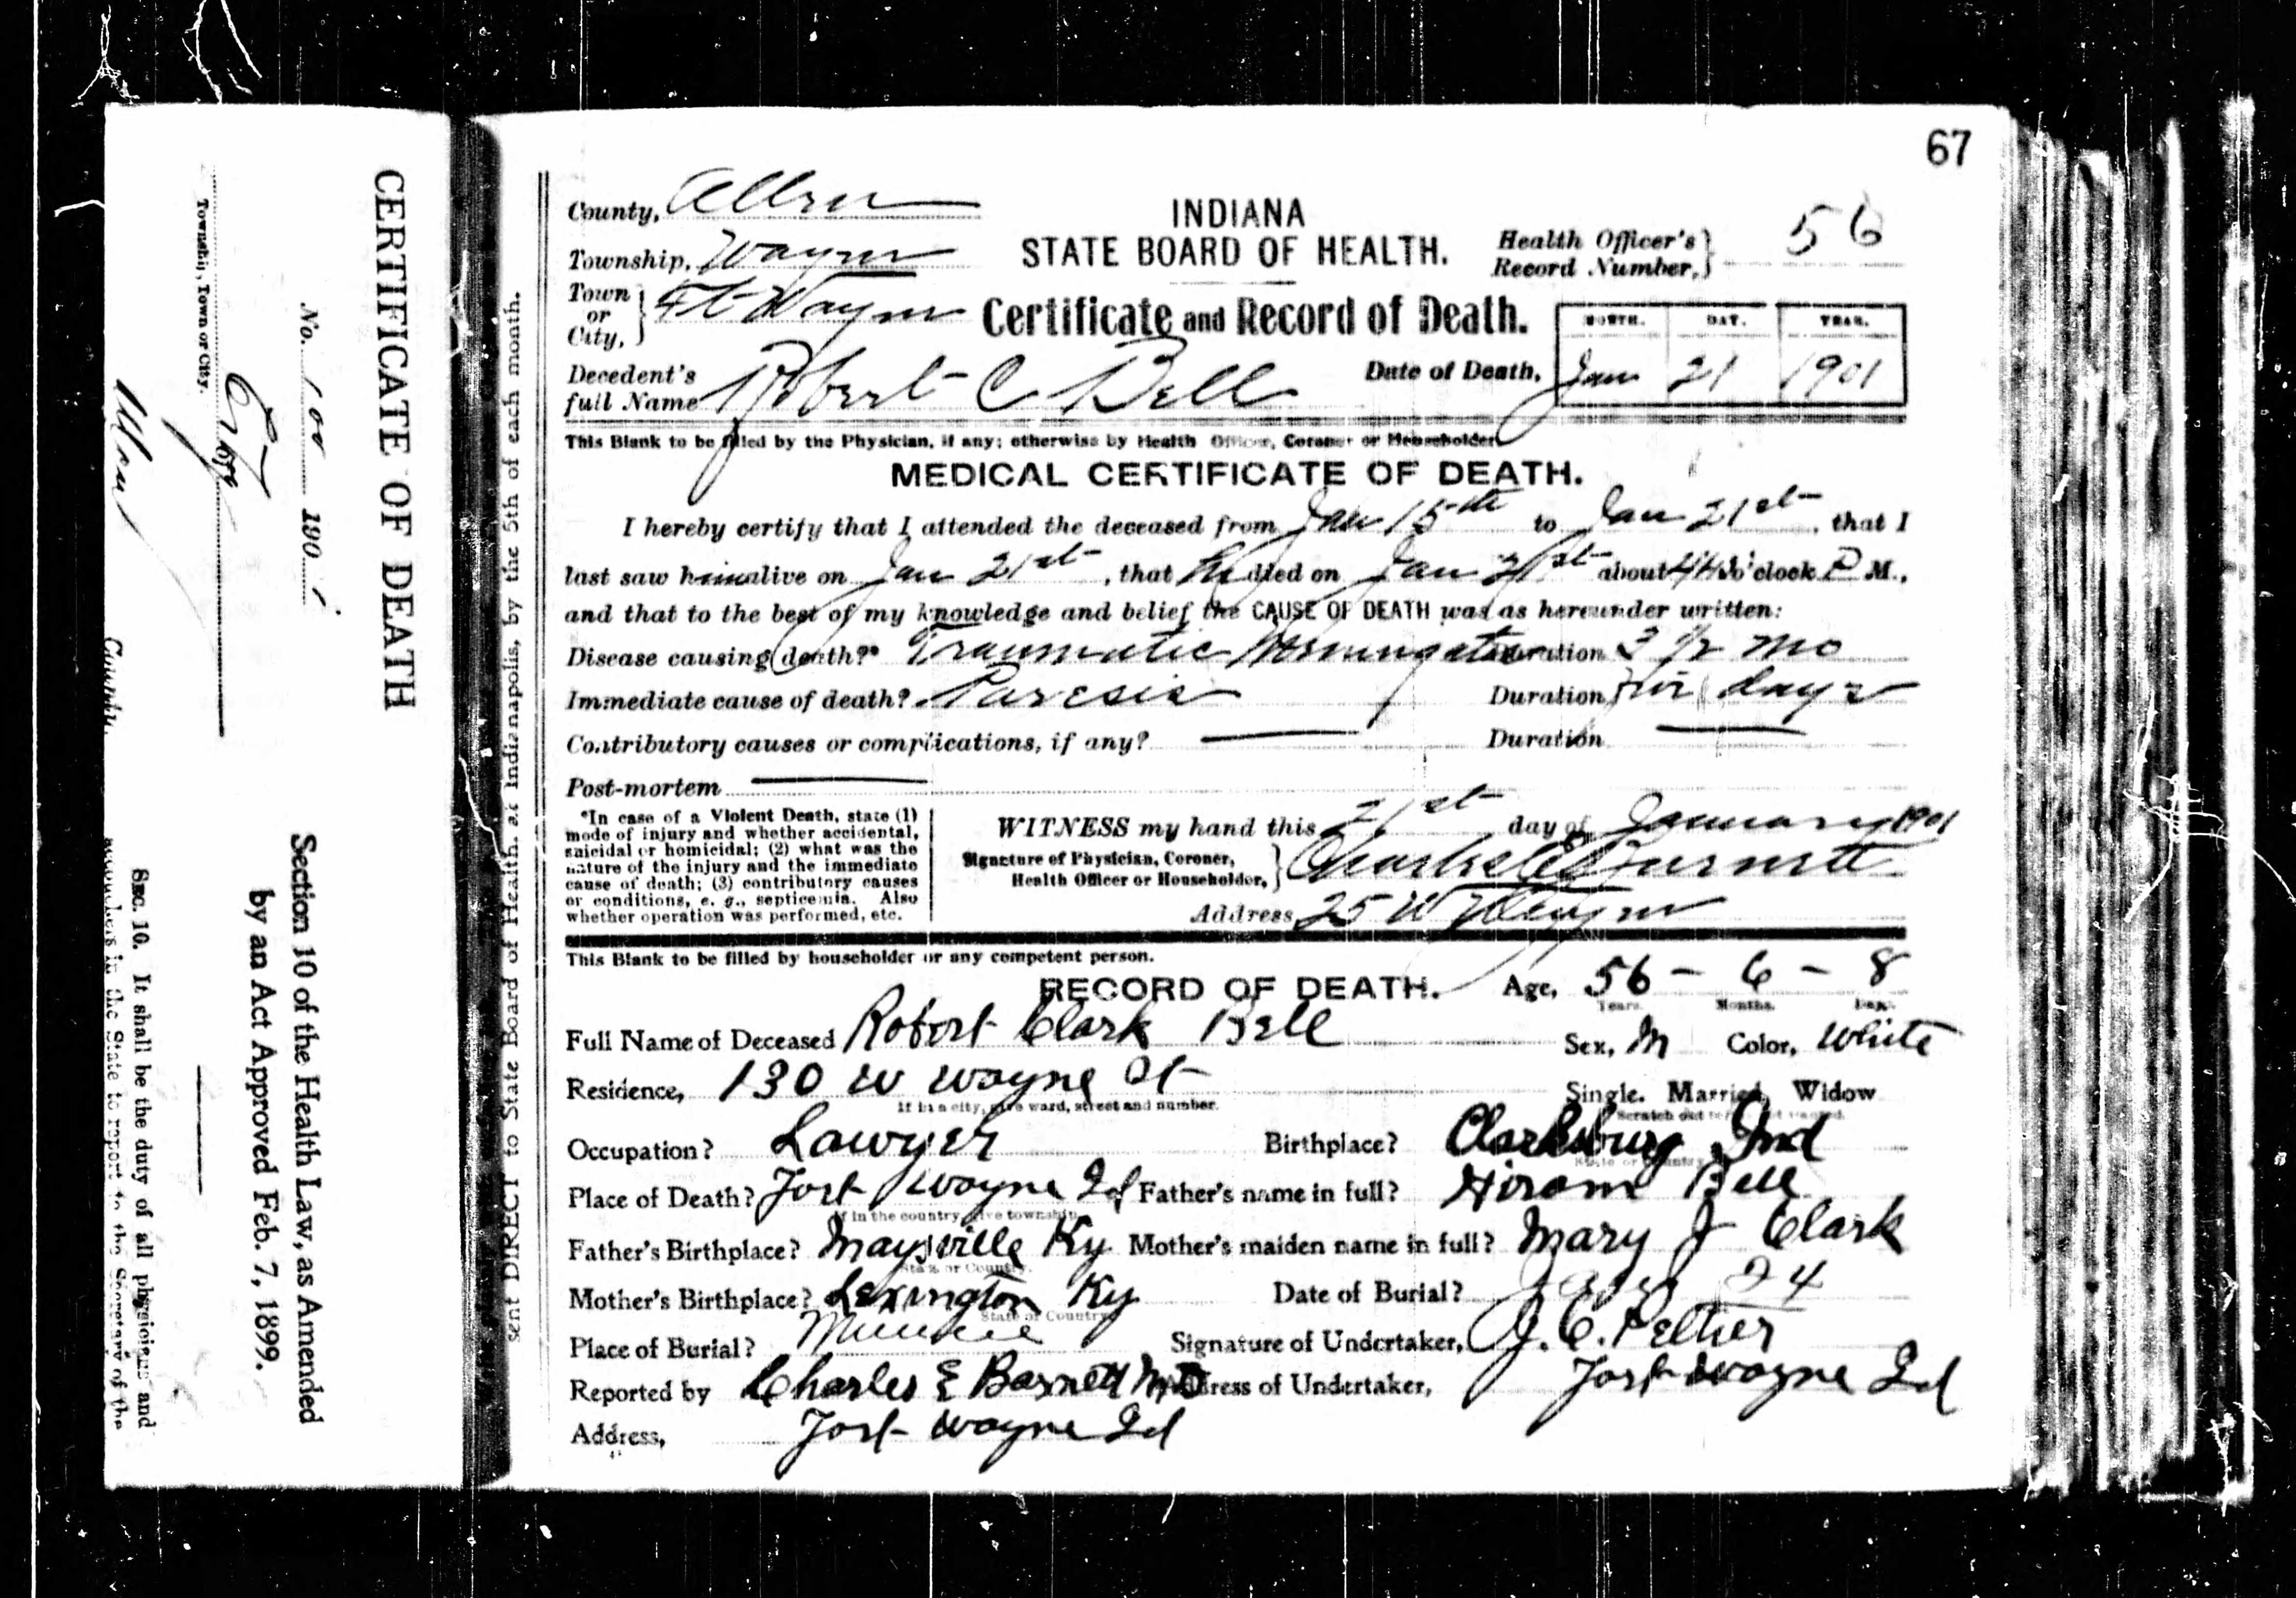 67
County, Allen
INDIANA
STATE BOARD OF HEALTH.
Health Officer's
Record Number, 56
Township, Wayne
Town
or
City, Ft Wayne
Certificate and Record of Death.
MONTH. DAY. YEAR.
Decedent's
full Name Robert C Bell
Date of Death, Jan 21 1901
This Blank to be filled by the Physician, if any; otherwise by Health Officer, Coroner or Householder
MEDICAL CERTIFICATE OF DEATH.
I hereby certify that I attended the deceased from Jan 15th to Jan 21st, that I
last saw him alive on Jan 21st, that he died on Jan 21st about o'clock P M.,
and that to the best of my knowledge and belief the CAUSE OF DEATH was as hereunder written:
Disease causing death?* Traumatic Duration 3 1/2 mo
Immediate cause of death? Paresis Duration five days
Contributory causes or complications, if any? Duration
Post-mortem
*In case of a Violent Death, state (1)
mode of injury and whether accidental,
suicidal or homicidal; (2) what was the
nature of the injury and the immediate
cause of death; (3) contributory causes
or conditions, e. g., septicemia. Also
whether operation was performed, etc.
WITNESS my hand this 21st day of January 1901
Signature of Physician, Coroner,
Health Officer or Householder, Charles E Barnett
Address, 25 W Wayne
This Blank to be filled by householder or any competent person.
RECORD OF DEATH. Age, 56 - 6 - 8
Years. Months. Days.
Full Name of Deceased Robert Clark Bell Sex, M Color, White
Residence, 130 W Wayne St Single. Married, Widow
If in a city, give ward, street and number.
Occupation? Lawyer Birthplace? Clarksburg Ind
State or Country
Place of Death? Fort Wayne Id Father's name in full? Hiram Bell
If in the country, give township.
Father's Birthplace? Maysville Ky Mother's maiden name in full? Mary J Clark
State or Country.
Mother's Birthplace? Lexington Ky Date of Burial? Jany 24
State or Country
Place of Burial? Muncie Signature of Undertaker, J. C. Peltier
Reported by Charles E Barnett MD Address of Undertaker, Fort Wayne Id
Address, Fort Wayne Id
sent DIRECT to State Board of Health, at Indianapolis, by the 5th of each month.
CERTIFICATE OF DEATH
No. 100 1901
City
Township, Town or City.
Allen County.
Section 10 of the Health Law, as Amended
by an Act Approved Feb. 7, 1899.
SEC. 10. It shall be the duty of all physicians and
accouchers in the State to report to the Secretary of the